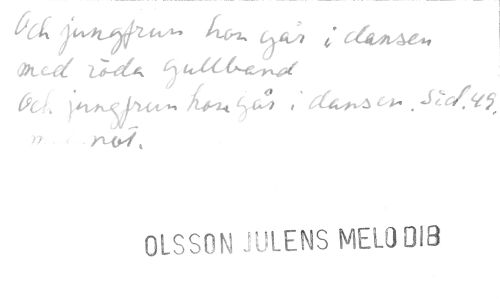 Och jungfrun hon går i dansen
med röda gullband
Och jungfrun hon går i dansen. Sid. 49.
not.
OLSSON JULENS MELODIB